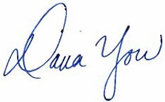 Dana You